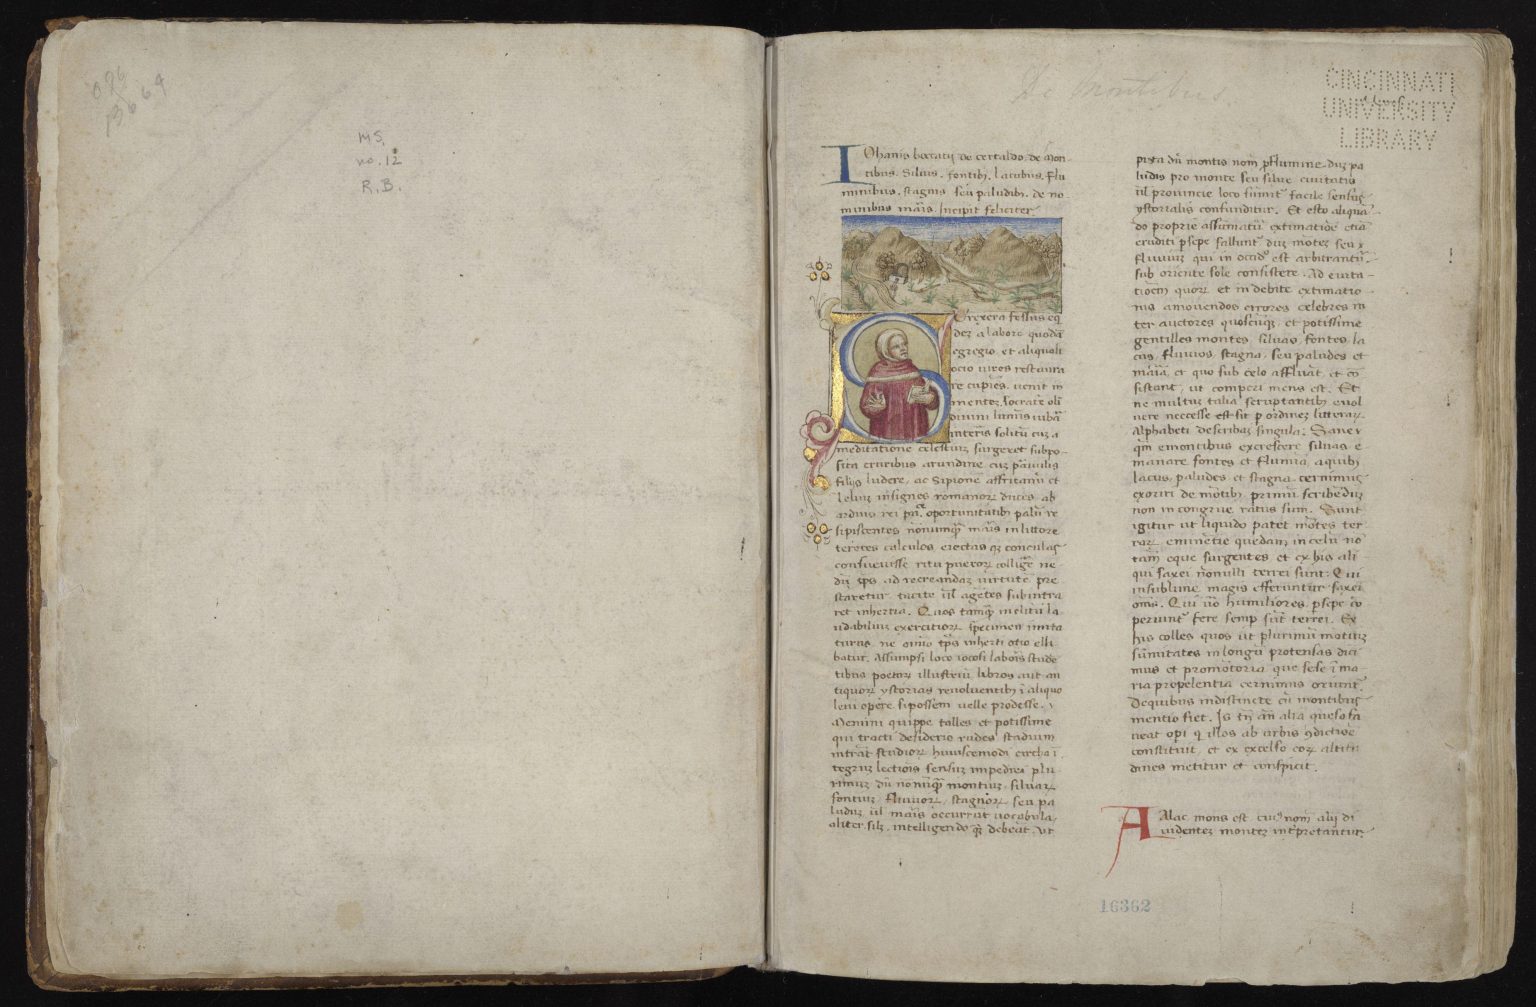 096
B664
MS.
no. 12
R.B.
De Montibus.
CINCINNATI
UNIVERSITY
LIBRARY
Iohanis boccatij de certaldo. de mon-
tibus. Siluis. fontibꝫ. lacubus. flu
minibus. stagnis seu paludibꝫ. de no-
minibus maris. Incipit feliciter
Surrexera fessus eq
dez a labore quodā
egregio. et aliquāli
ocio uires restaura
re cupiēs. uenit in
mentez. socratē oli
diuini luminis iubā
interis solitū cuz a
meditatione celestium surgeret suppo-
sita cruribus arundine cuz paruulis
filijs ludere. ac Sipione affricanū et
Lelium insignes romanorꝝ duces ab
arduis rei oportunitatibꝫ
sipiscentes nonumqȝ maris in littore
teretes calculos. erectas qȝ conculas
consueuisse ritu puerorꝝ colligere ne
dū ips ad recreandaz uirtutē pre-
staretur tacite ul agētes subintra
ret inhertia. Quos tamqȝ inclitū la-
udabilium exercitiorꝝ specimen imita
turus. ne omīo tp̄s inherti otio elli-
batur. Assumpsi loco iocosi laboris stude
tibus poetarꝝ illustriū libros aut an
tiquorꝝ ystorias reuoluentibꝫ ī aliquo
leui opere. si possem uelle prodesse.
Memini quippe talles et potissime
qui tracti desiderio rudes stadium
intrāt studiorꝝ huiuscemodi circha ī
tegruz lectiois sensuz impediri plu-
rimuz dū nonūqȝ montiuz. siluarꝝ
fontiuz. fluuiorꝝ. stagnorꝝ seu pa
ludiuz ul maris occurrūt uocabula.
aliter. silꝫ. intelligendo qȝ debeāt. Vt
piga dū montis nom̄ p flumine duz pa
ludis pro monte seu silue ciuitatis
ul prouincie loco sumit facile sensus
ystorialis confunditur. Et esto aliquā-
do proprie assumatū extimatiōe etiā
eruditi psepe fallunt duz mōtez seu
fluuiuz qui in occidō est arbitrantū.
sub oriente sole consistere. Ad euita-
tiōem quorꝝ et indebite extimatio-
nis amouendos errores celebres in
ter auctores quoscūqȝ et potissime
gentilles montes siluas. fontes. la
cus. fluuios. stagna. seu paludes et
maria. et quo sub celo affluāt et cō
sistant. ut comperi mens est. Et
ne multuz talia scruptantibꝫ euol
uere necesse est sit p ordinez litterarꝝ
Alphabeti describaz singula. Sane
qm̄ emontibus excrescere siluas e
manare fontes et flumīa. a quibꝫ
lacus. paludes et stagna cernimus
exoriri de mōtibꝫ primū scribeduz
non in congrue ratus sum. Sunt
igitur ut liquido patet mōtes ter
rarꝝ eminētie quedam in celū nō
tam̄ eque surgentes et ex his ali
qui saxei nōnulli terrei sunt. Qui
insublime magis efferuntur saxei
om̄s. Qui uō humiliores psepe cō
periunt fere semp sūt terrei. Ex
his colles quos ut plurimū motiuz
sūmitates in longū protensas dici
mus et promōtoria que sese ī ma-
ria propelentia cernimus oriunt̄.
De quibus indistincte cū montibus
mentio fiet. Is tn̄ an̄ alia queso fa
ueat opi q illos ab orbis ꝯdictiōe
constituit. et ex excelso eorꝝ altitu
dines metitur et conspicit.
Alac mons est cuiꝯ nom̄ alij di
uidentez montez interpretantur.
16362